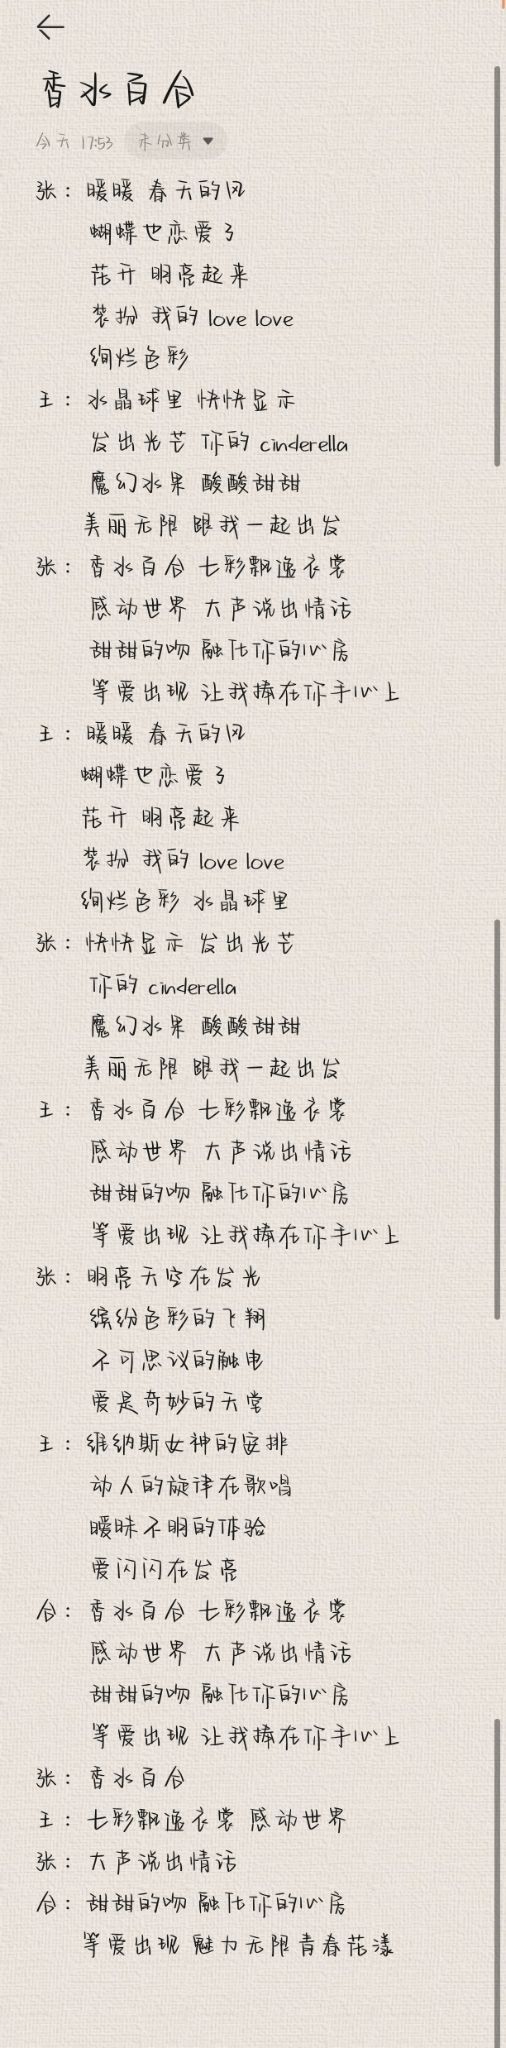 香水百合
今天 17:53 未分类
张：暖暖 春天的风
蝴蝶也恋爱了
花开 明亮起来
装扮 我的 love love
绚烂色彩
王：水晶球里 快快显示
发出光芒 你的 cinderella
魔幻水果 酸酸甜甜
美丽无限 跟我一起出发
张：香水百合 七彩飘逸衣裳
感动世界 大声说出情话
甜甜的吻 融化你的心房
等爱出现 让我捧在你手心上
王：暖暖 春天的风
蝴蝶也恋爱了
花开 明亮起来
装扮 我的 love love
绚烂色彩 水晶球里
张：快快显示 发出光芒
你的 cinderella
魔幻水果 酸酸甜甜
美丽无限 跟我一起出发
王：香水百合 七彩飘逸衣裳
感动世界 大声说出情话
甜甜的吻 融化你的心房
等爱出现 让我捧在你手心上
张：明亮天空在发光
缤纷色彩的飞翔
不可思议的触电
爱是奇妙的天堂
王：维纳斯女神的安排
动人的旋律在歌唱
暧昧不明的体验
爱闪闪在发亮
合：香水百合 七彩飘逸衣裳
感动世界 大声说出情话
甜甜的吻 融化你的心房
等爱出现 让我捧在你手心上
张：香水百合
王：七彩飘逸衣裳 感动世界
张：大声说出情话
合：甜甜的吻 融化你的心房
等爱出现 魅力无限青春花漾